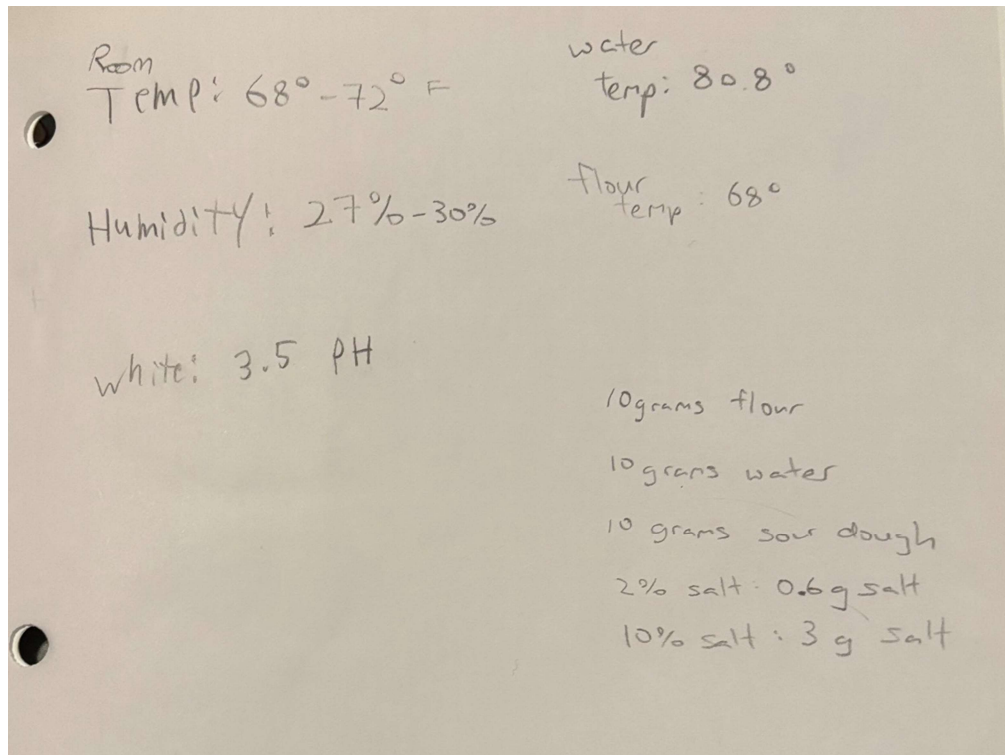 Room
Temp: 68° - 72° F
Humidity: 27% - 30%
white: 3.5 PH
water
temp: 80.8°
flour
temp: 68°
10grams flour
10 grams water
10 grams sour dough
2% salt: 0.6g salt
10% salt: 3 g salt